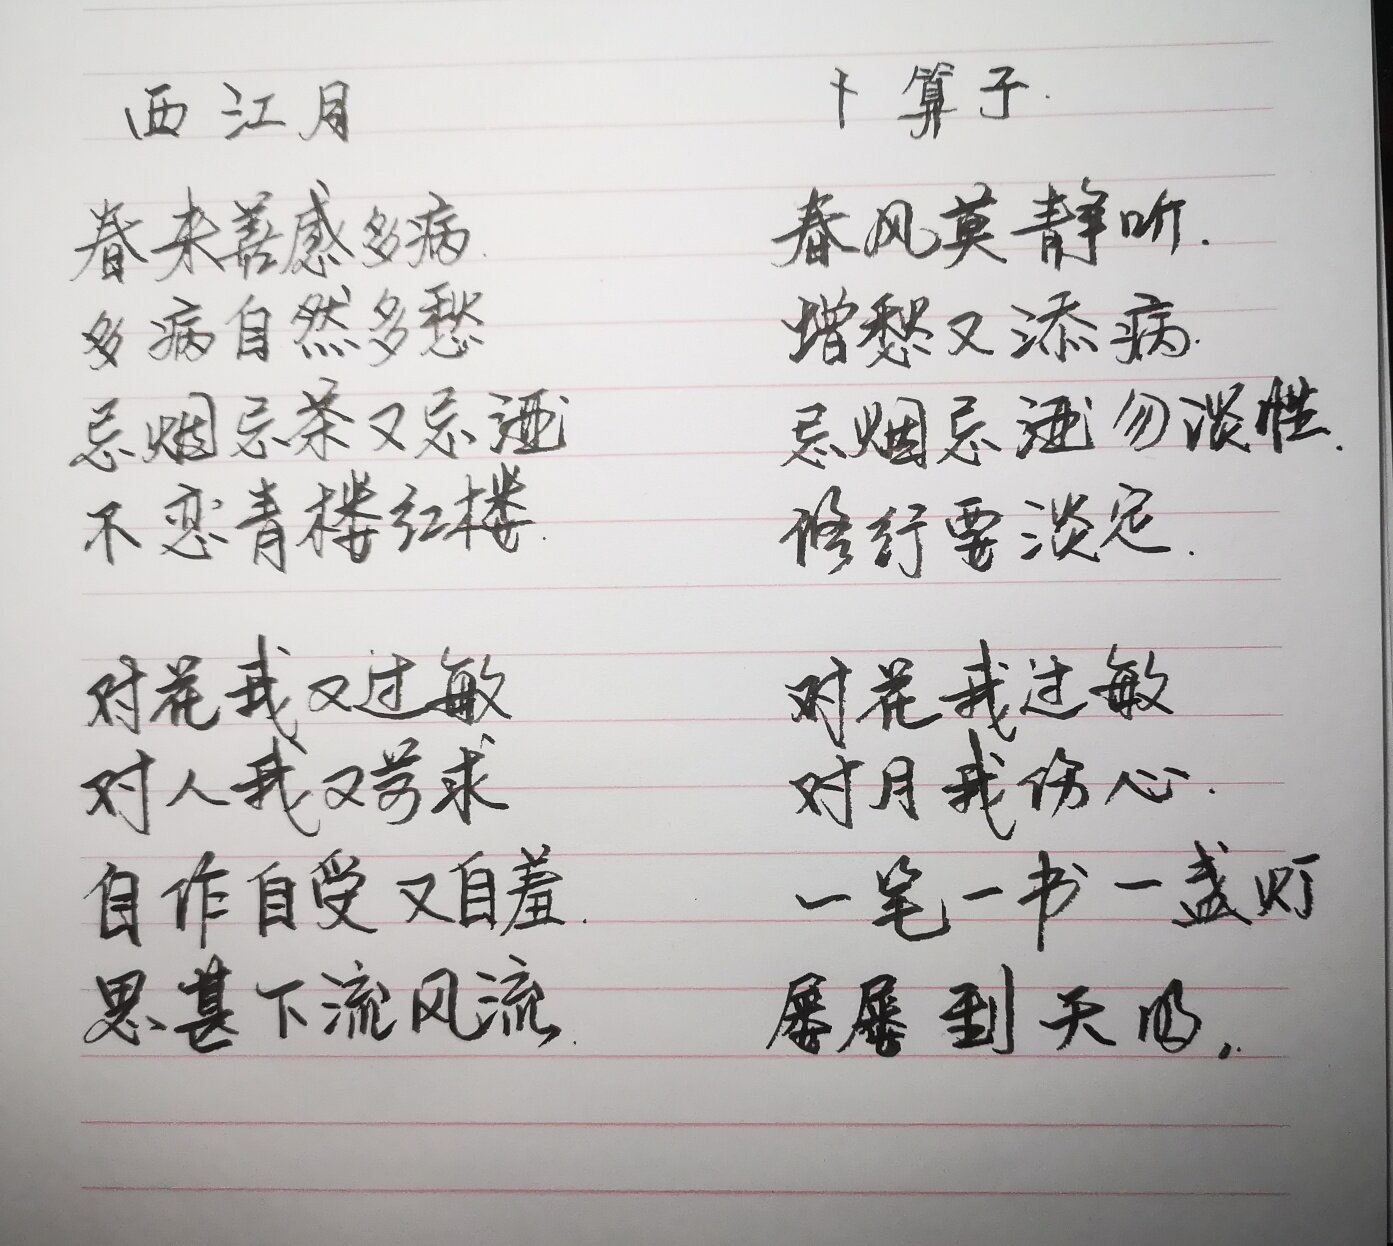 西江月
春来善感多病.
多病自然多愁
忌烟忌茶又忌酒
不恋青楼红楼.
对花我又过敏
对人我又苛求
自作自受又自羞.
思甚下流风流.
卜算子.
春风莫静听.
增愁又添病.
忌烟忌酒勿淡性.
修行要淡定.
对花我过敏
对月我伤心.
一笔一书一盏灯
屡屡到天明.